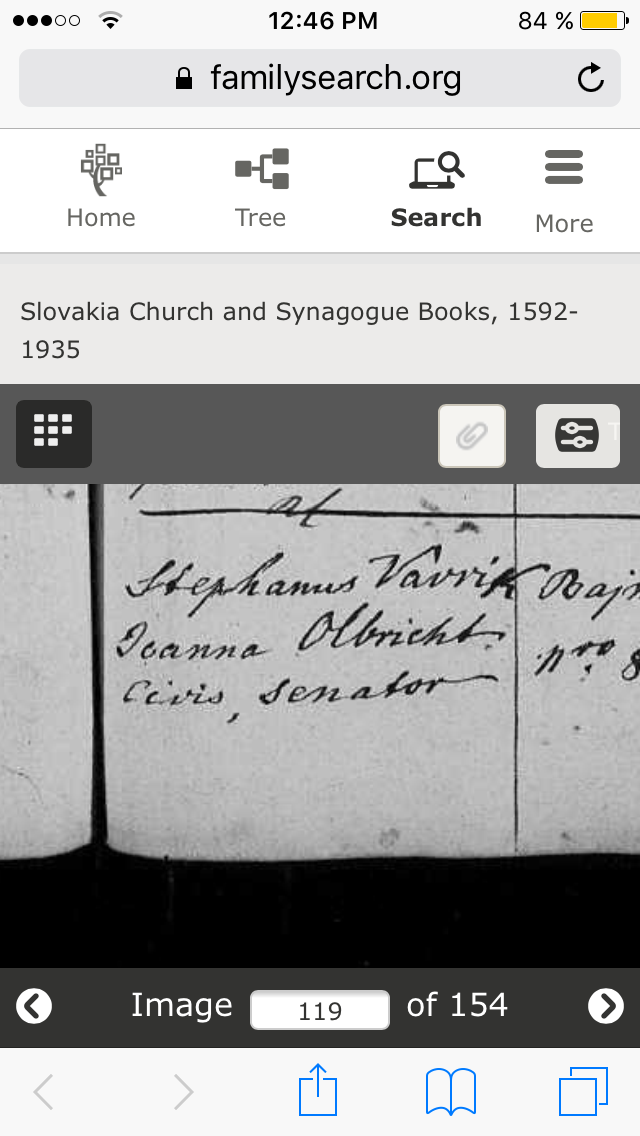 12:46 PM
84 %
familysearch.org
Home
Tree
Search
More
Slovakia Church and Synagogue Books, 1592-
1935
Stephanus Vavrik
Joanna Olbricht
Civis, Senator
nro 8
Image 119 of 154